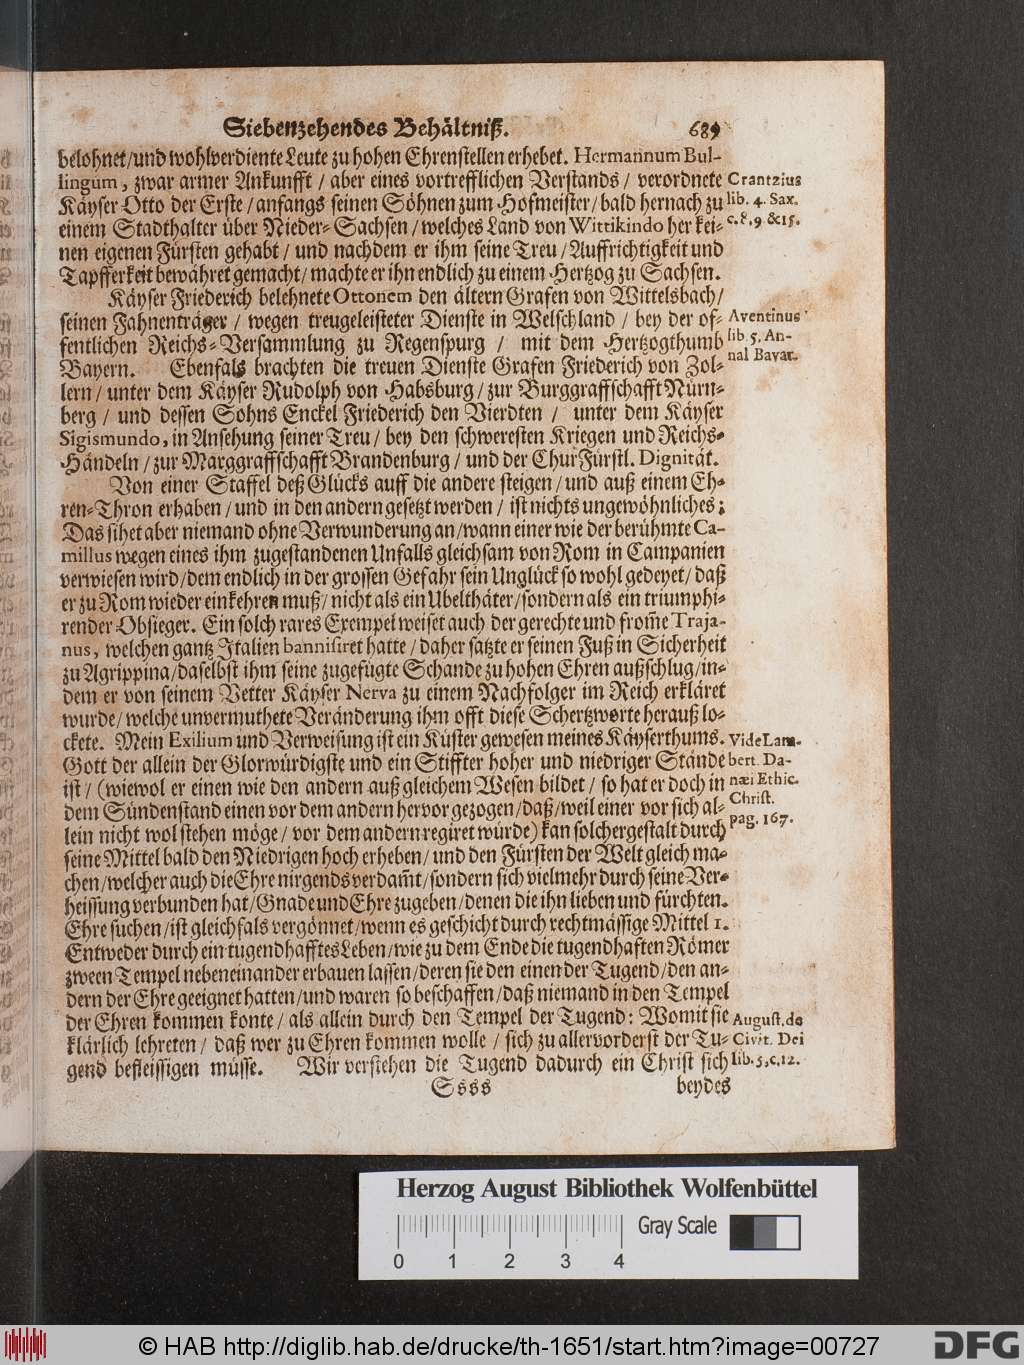 Siebenzehendes Behältniß. 689
belohnet/und wohlverdiente Leute zu hohen Ehrenstellen erhebet. Hermannum Bul-
lingum, zwar armer Ankunfft / aber eines vortrefflichen Verstands / verordnete
Käyser Otto der Erste / anfangs seinen Söhnen zum Hofmeister / bald hernach zu
einem Stadthalter über Nieder-Sachsen / welches Land von Wittikindo her kei-
nen eigenen Fürsten gehabt / und nachdem er ihm seine Treu / Auffrichtigkeit und
Tapfferkeit bewähret gemacht / machte er ihn endlich zu einem Hertzog zu Sachsen.
Crantzius
lib. 4. Sax.
c. 8. 9 & 15.
Käyser Friederich belehnete Ottonem den ältern Grafen von Wittelsbach /
seinen Fahnenträger / wegen treugeleisteter Dienste in Welschland / bey der of-
fentlichen Reichs-Versammlung zu Regenspurg / mit dem Hertzogthumb
Bayern. Ebenfals brachten die treuen Dienste Grafen Friederich von Zol-
lern / unter dem Käyser Rudolph von Habsburg / zur Burggraffschafft Nürn-
berg / und dessen Sohns Enckel Friederich den Vierdten / unter dem Käyser
Sigismundo, in Ansehung seiner Treu / bey den schweresten Kriegen und Reichs-
Händeln / zur Marggraffschafft Brandenburg / und der ChurFürstl. Dignität.
Aventinus
lib. 5. An-
nal Bavar.
Von einer Staffel deß Glücks auff die andere steigen / und auß einem Eh-
ren-Thron erhaben / und in den andern gesetzt werden / ist nichts ungewöhnliches;
Das sihet aber niemand ohne Verwunderung an / wann einer wie der berühmte Ca-
millus wegen eines ihm zugestandenen Unfalls gleichsam von Rom in Campanien
verwiesen wird / dem endlich in der grossen Gefahr sein Unglück so wohl gedeyet / daß
er zu Rom wieder einkehren muß / nicht als ein Ubelthäter / sondern als ein triumphi-
render Obsieger. Ein solch rares Exempel weiset auch der gerechte und from̄e Traja-
nus, welchen gantz Italien bannisiret hatte / daher satzte er seinen Fuß in Sicherheit
zu Agrippina / daselbst ihm seine zugefügte Schande zu hohen Ehren außschlug / in-
dem er von seinem Vetter Käyser Nerva zu einem Nachfolger im Reich erkläret
wurde / welche unvermuthete Veränderung ihm offt diese Schertzworte herauß lo-
ckete. Mein Exilium und Verweisung ist ein Küster gewesen meines Käyserthums.
Gott der allein der Glorwürdigste und ein Stiffter hoher und niedriger Stände
ist / (wiewol er einen wie den andern auß gleichem Wesen bildet / so hat er doch in
dem Sündenstand einen vor dem andern hervor gezogen / daß / weil einer vor sich al-
lein nicht wol stehen möge / vor dem andern regiret würde) kan solchergestalt durch
seine Mittel bald den Niedrigen hoch erheben / und den Fürsten der Welt gleich ma-
chen / welcher auch die Ehre nirgends verdam̄t / sondern sich vielmehr durch seine Ver-
heissung verbunden hat / Gnade und Ehre zugeben / denen die ihn lieben und fürchten.
Ehre suchen / ist gleichfals vergönnet / wenn es geschicht durch rechtmässige Mittel 1.
Entweder durch ein tugendhafftes Leben / wie zu dem Ende die tugendhaften Römer
zween Tempel nebeneinander erbauen lassen / deren sie den einen der Tugend / den an-
dern der Ehre geeignet hatten / und waren so beschaffen / daß niemand in den Tempel
der Ehren kommen konte / als allein durch den Tempel der Tugend: Womit sie
klärlich lehreten / daß wer zu Ehren kommen wolle / sich zu allervorderst der Tu-
gend befleissigen müsse. Wir verstehen die Tugend dadurch ein Christ sich
Vide Lam-
bert. Da-
næi Ethic.
Christ.
pag. 167.
August. de
Civit. Dei
lib. 5, c. 12.
Ssss beydes
Herzog August Bibliothek Wolfenbüttel
Gray Scale
0 1 2 3 4
© HAB http://diglib.hab.de/drucke/th-1651/start.htm?image=00727
DFG